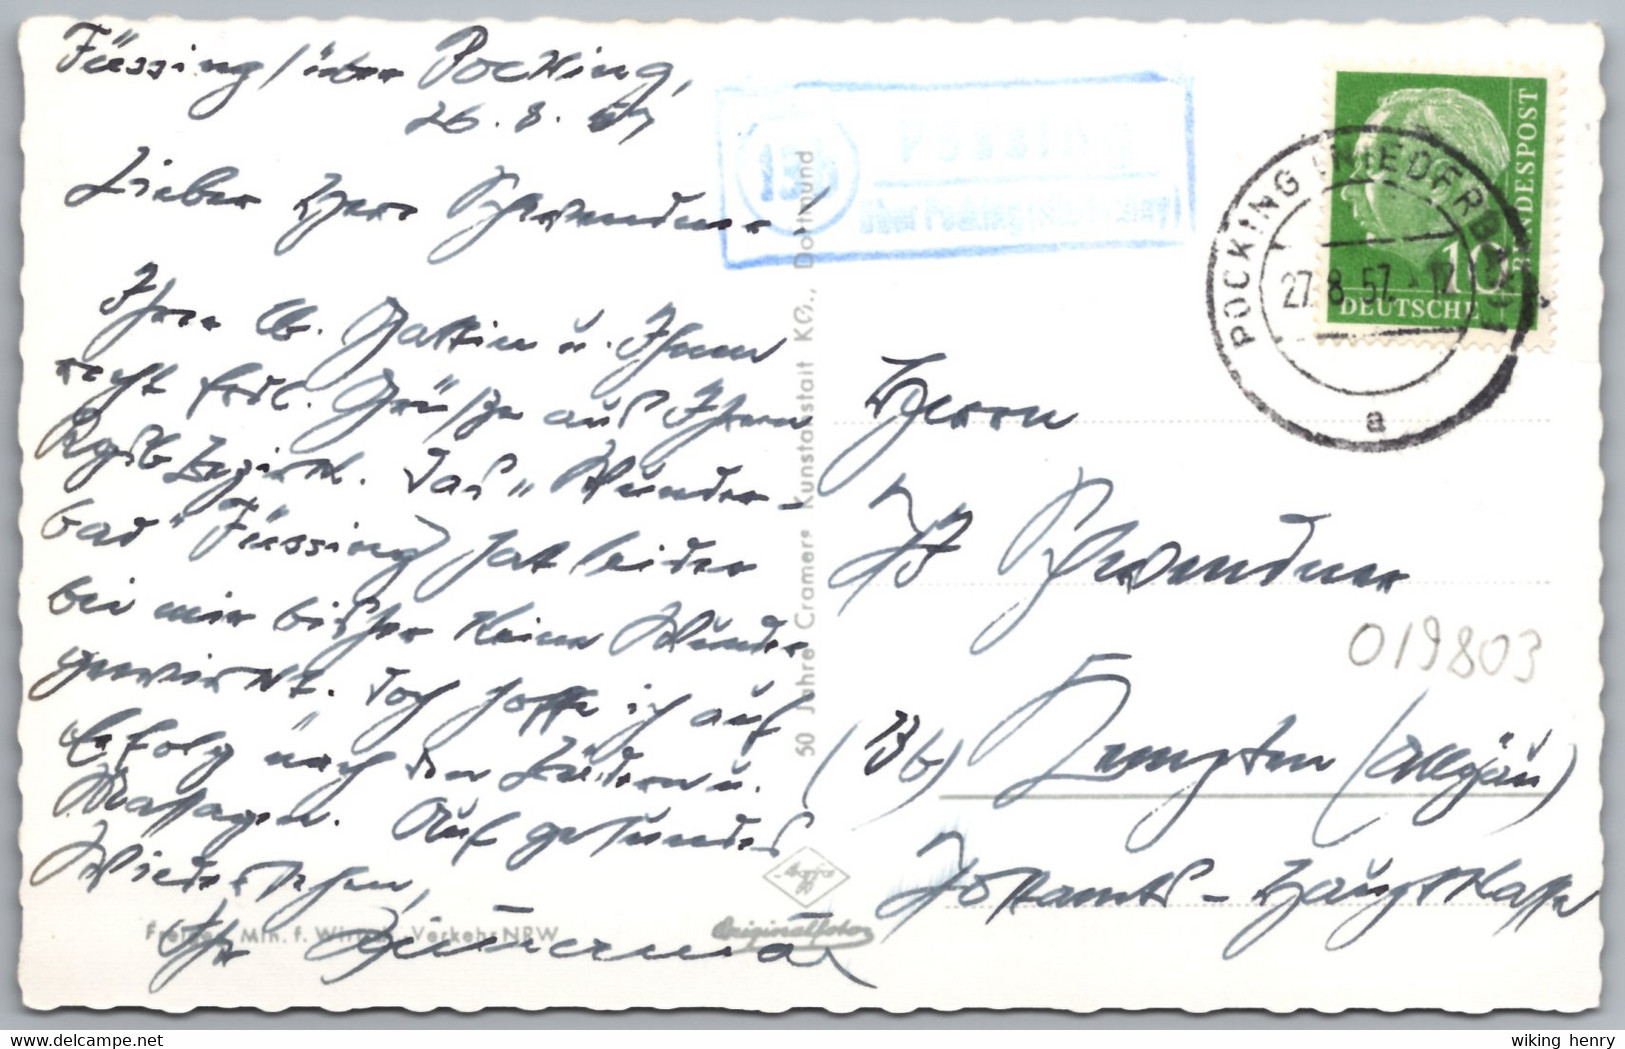 Füssing / über Pocking,
26. 8. 57
Lieber Herr Schwendner!
Ihrer lb. Gattin u. Ihnen
recht frdl. Grüße aus Ihrem
Bezirk. Das „Wunder-
bad" Füssing hat leider
bei mir bisher keine Wunder
gewirkt. Doch hoffe ich auf
Erfolg nach den Bädern u.
Massagen. Auf gesundes
Wiedersehen,
Ihr
Freigeg. Min. f. Wirtsch. Verkehr NRW
Originalfoto
50 Jahre Cramers Kunstanstalt KG., Dortmund
Füssing
über Pocking
POCKING (NIEDERBAY)
27.8.57
a
10
DEUTSCHE
BUNDESPOST
Herrn
Schwendner
019803
Kempten (Allgäu)
Postamts-Hauptkasse
wiking henry